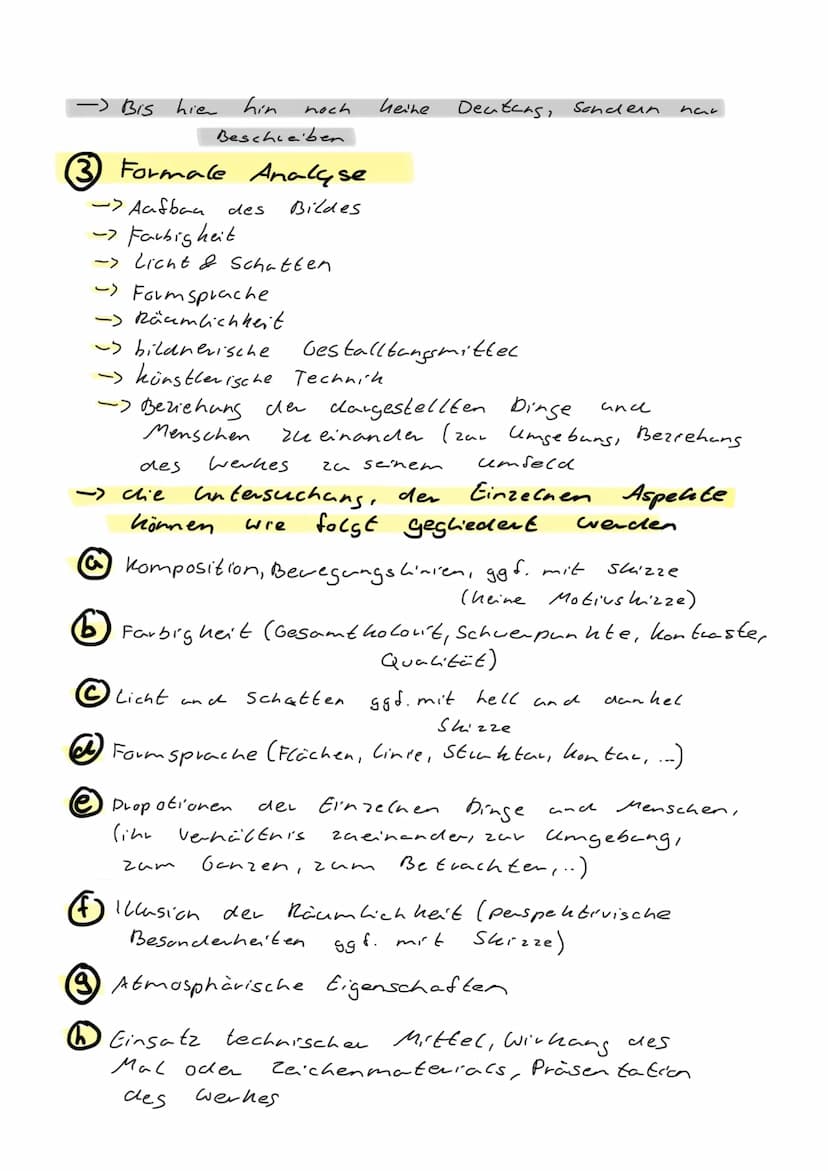 → Bis hier hin noch keine Deutung, sondern nur
Beschreiben
③ Formale Analyse
→ Aufbau des Bildes
→ Farbigkeit
→ Licht & Schatten
→ Formsprache
→ Räumlichkeit
→ bildnerische Gestalltungsmittel
→ künstlerische Technik
→ Beziehung der dargestellten Dinge und
Menschen zueinander (zur Umgebung, Beziehung
des Werkes zu seinem Umfeld
→ die Untersuchung, der Einzelnen Aspekte
können wie folgt gegliedert werden
ⓐ Komposition, Bewegungslinien, ggf. mit Skizze
(keine Motivskizze)
ⓑ Farbigkeit (Gesamtkolorit, Schwerpunkte, Kontraste,
Qualität)
ⓒ Licht und Schatten ggf. mit hell und dunkel
Skizze
ⓓ Formsprache (Flächen, Linie, Struktur, Kontur, ...)
ⓔ Propotionen der Einzelnen Dinge und Menschen,
(ihr Verhältnis zueinander, zur Umgebung,
zum Ganzen, zum Betrachter,..)
ⓕ Illusion der Räumlichkeit (perspektivische
Besonderheiten ggf. mit Skizze)
ⓖ Atmosphärische Eigenschaften
ⓗ Einsatz technischer Mittel, Wirkung des
Mal oder Zeichenmaterials, Präsentation
des Werkes